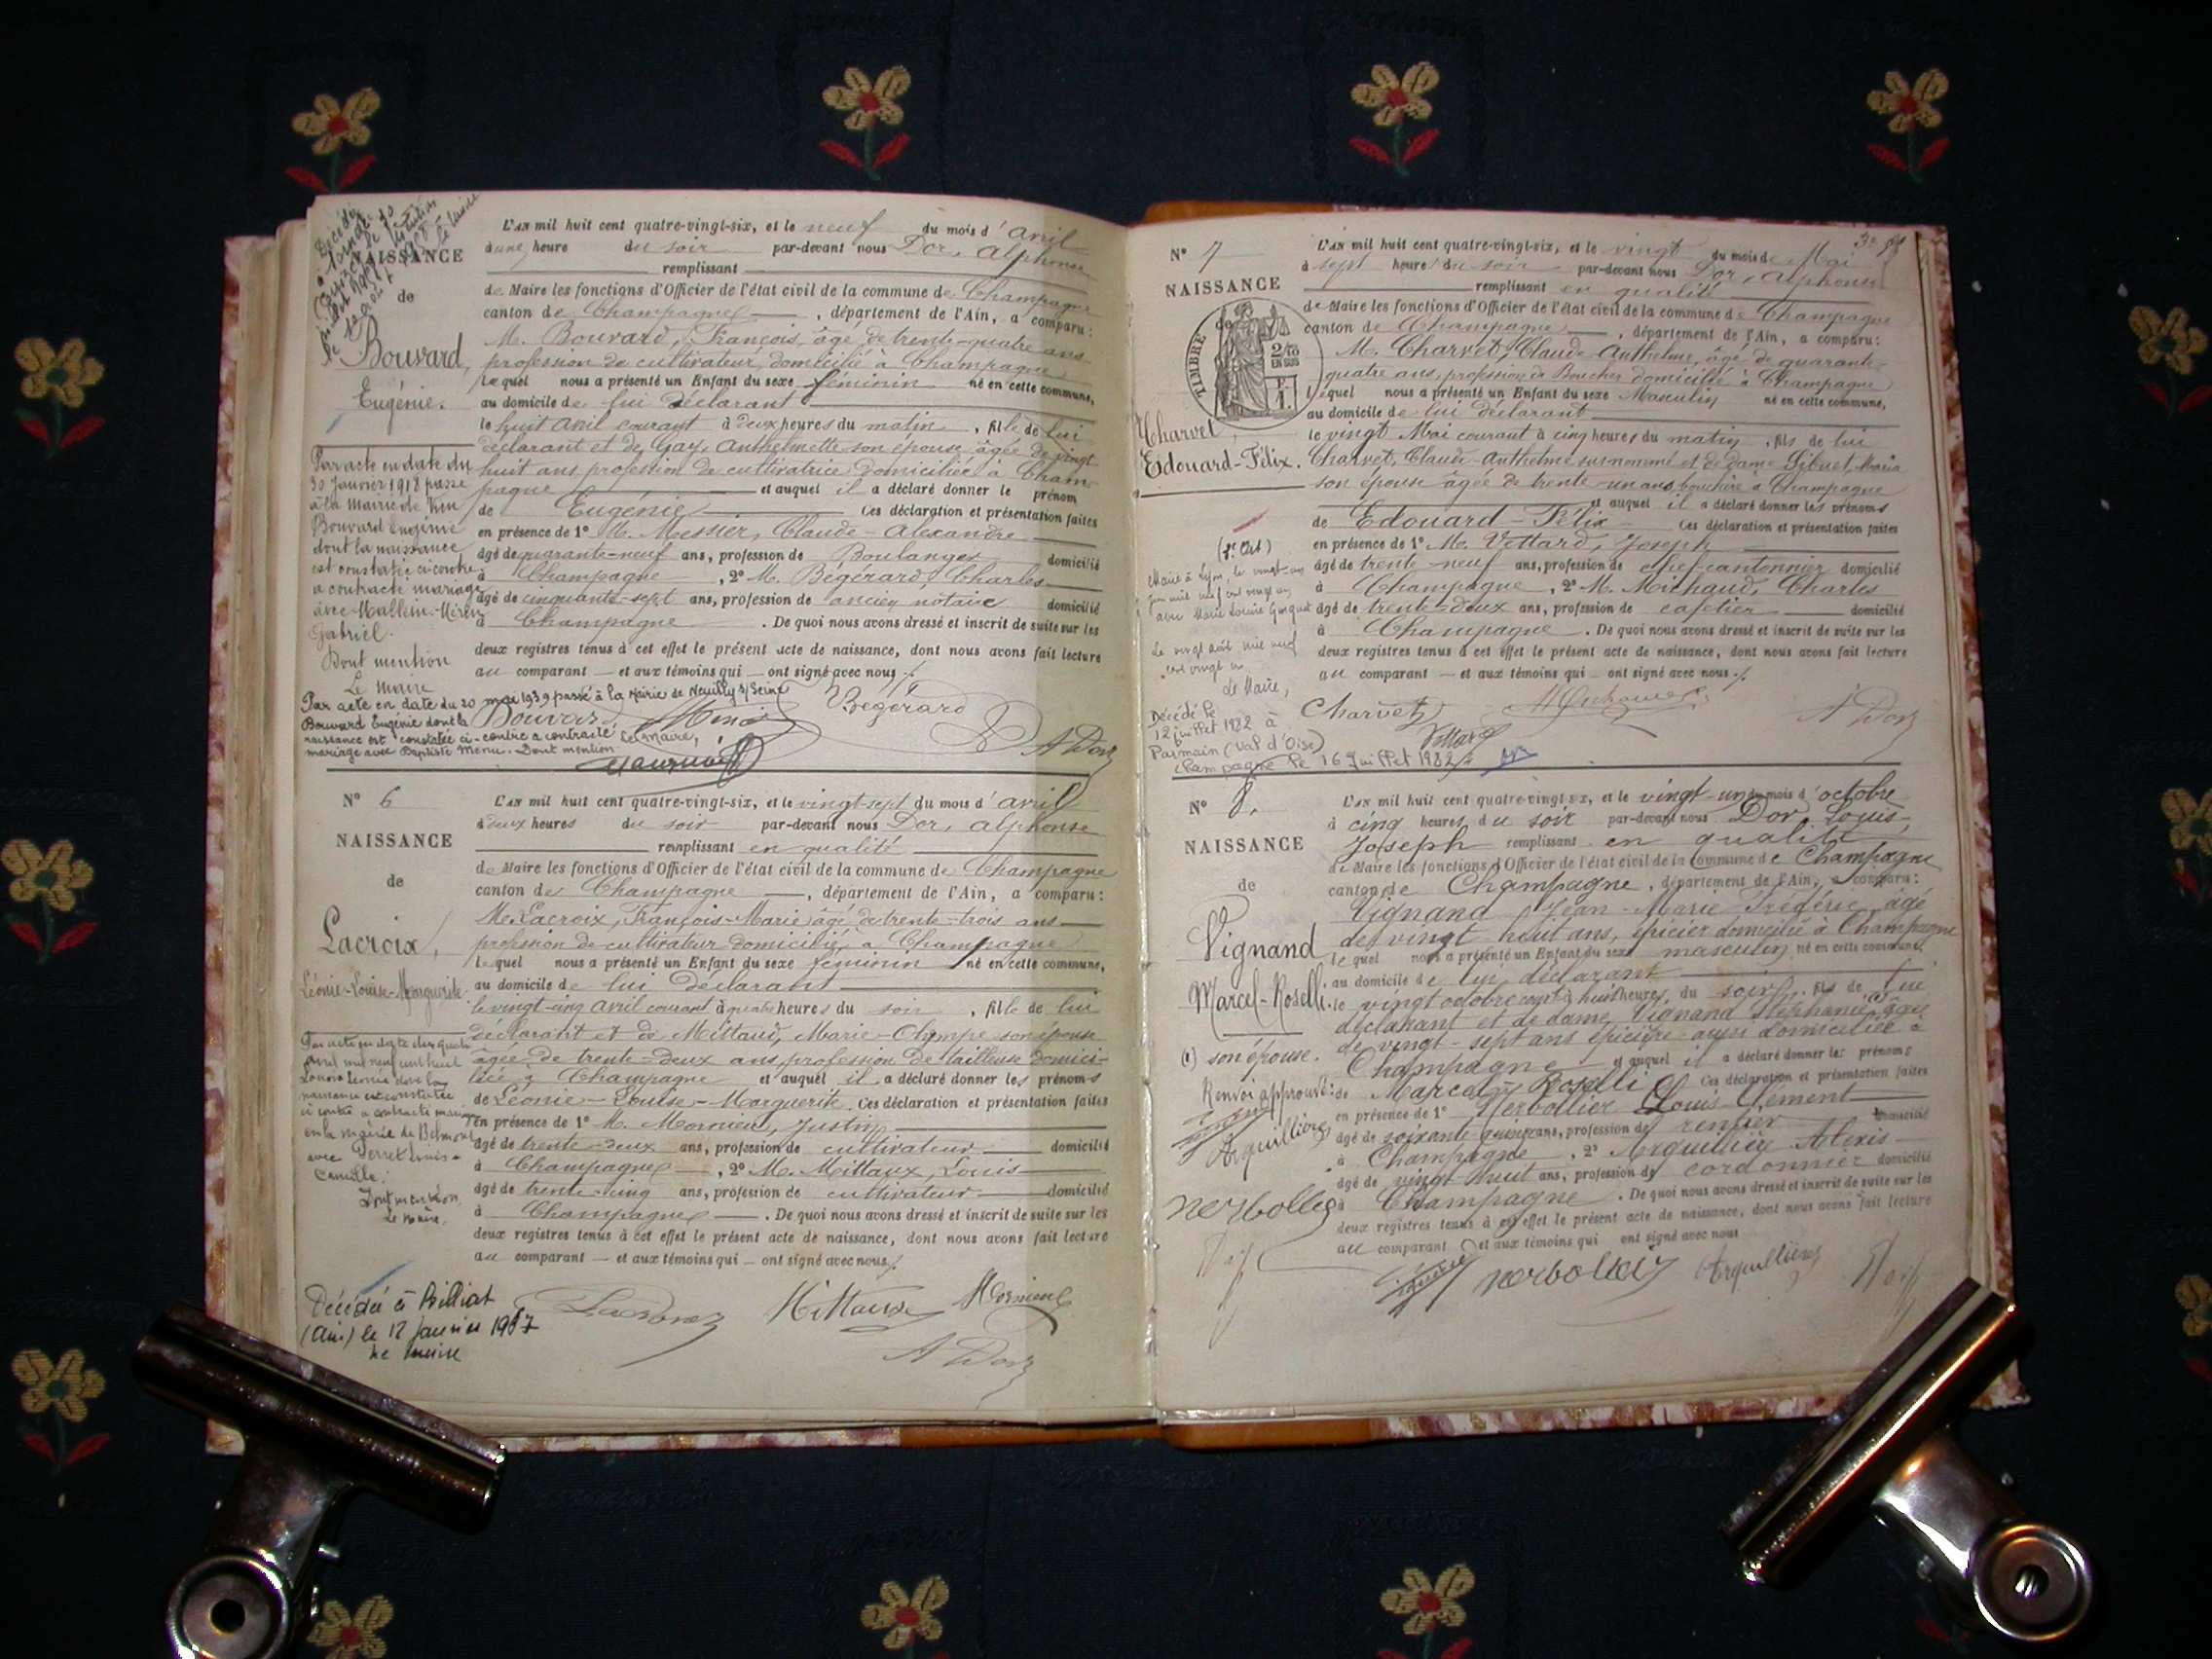 NAISSANCE
de
Bouvard,
Eugénie.
L'AN mil huit cent quatre-vingt-six, et le neuf du mois d'avril
à une heure du soir par-devant nous Dor, Alphonse
remplissant
de Maire les fonctions d'Officier de l'état civil de la commune de Champagne
canton de Champagne, département de l'Ain, a comparu:
M. Bouvard, François, âgé de trente-quatre ans
profession de cultivateur, domicilié à Champagne
lequel nous a présenté un Enfant du sexe féminin né en cette commune,
au domicile de lui déclarant
le huit avril courant à deux heures du matin, fille de lui
déclarant et de Gay, Anthelmette son épouse âgée de vingt
huit ans profession de cultivatrice domiciliée à Cham-
pagne et auquel il a déclaré donner le prénom
de Eugénie Ces déclaration et présentation faites
en présence de 1° M. Messier, Claude-Alexandre
âgé de quarante-neuf ans, profession de Boulanger domicilié
à Champagne, 2° M. Bégérard Charles
âgé de cinquante-sept ans, profession de ancien notaire domicilié
à Champagne. De quoi nous avons dressé et inscrit de suite sur les
deux registres tenus à cet effet le présent acte de naissance, dont nous avons fait lecture
au comparant — et aux témoins qui — ont signé avec nous ./.
Par acte en date du
30 Janvier 1918 passé
à la Mairie de
Bouvard Eugénie
dont la naissance
est constatée ci-contre
a contracté mariage
avec
Gabriel.
Dont mention
Le Maire
Par acte en date du 20 mai 1939 passé à la Mairie de Neuilly s/ Seine
Bouvard Eugénie dont la
naissance est constatée ci-contre a contracté
mariage avec Baptiste Menu. Dont mention Le Maire,
Bouvard Bégérard
A Dor
N° 6
NAISSANCE
de
Lacroix,
Léonie-Louise-Marguerite.
L'AN mil huit cent quatre-vingt-six, et le vingt-sept du mois d'avril
à deux heures du soir par-devant nous Dor, Alphonse
remplissant en qualité
de Maire les fonctions d'Officier de l'état civil de la commune de Champagne
canton de Champagne, département de l'Ain, a comparu:
M. Lacroix, François-Marie âgé de trente-trois ans
profession de cultivateur domicilié, à Champagne
lequel nous a présenté un Enfant du sexe féminin né en cette commune,
au domicile de lui déclarant
le vingt-cinq avril courant à quatre heures du soir, fille de lui
déclarant et de Mittaud, Marie-Olympe son épouse
âgée de trente-deux ans, profession de tailleuse domici-
liée à Champagne et auquel il a déclaré donner les prénoms
de Léonie-Louise-Marguerite. Ces déclaration et présentation faites
en présence de 1° M. Mornieux, Justin
âgé de trente-deux ans, profession de cultivateur domicilié
à Champagne, 2° M. Mittaux, Louis
âgé de trente-cinq ans, profession de cultivateur domicilié
à Champagne. De quoi nous avons dressé et inscrit de suite sur les
deux registres tenus à cet effet le présent acte de naissance, dont nous avons fait lecture
au comparant — et aux témoins qui — ont signé avec nous ./.
naissance est constatée
ci contre a contracté mariage
en la mairie de Belmont
avec Perret Louis-
Camille.
Dont mention.
Le Maire.
Décédée à
(Ain) le 12 janvier 1967
Le Maire
Lacroix Mittaux Mornieux
A Dor
N° 7
NAISSANCE
de
TIMBRE
Charvet,
Edouard-Félix.
L'AN mil huit cent quatre-vingt-six, et le vingt du mois de Mai
à sept heures du soir par-devant nous Dor, Alphonse
remplissant en qualité
de Maire les fonctions d'Officier de l'état civil de la commune de Champagne
canton de Champagne, département de l'Ain, a comparu:
M. Charvet, Claude-Anthelme, âgé de quarante-
quatre ans, profession de Boucher domicilié à Champagne
lequel nous a présenté un Enfant du sexe Masculin né en cette commune,
au domicile de lui déclarant
le vingt Mai courant à cinq heures du matin, fils de lui
Charvet, Claude-Anthelme surnommé et de dame Gibuet, Maria
son épouse âgée de trente-un ans, bouchère à Champagne
et auquel il a déclaré donner les prénoms
de Edouard-Félix Ces déclaration et présentation faites
en présence de 1° M. Vettard, Joseph
âgé de trente-neuf ans, profession de chef-cantonnier domicilié
à Champagne, 2° M. Michaud, Charles
âgé de trente-deux ans, profession de cafetier domicilié
à Champagne. De quoi nous avons dressé et inscrit de suite sur les
deux registres tenus à cet effet le présent acte de naissance, dont nous avons fait lecture
au comparant — et aux témoins qui — ont signé avec nous ./.
Marié à Lyon, le vingt-un
juin mil neuf cent vingt un
avec Marie Louise
Le vingt août mil neuf
cent vingt un
Le Maire,
Décédé le
12 juillet 1982 à
Parmain (Val d'Oise)
Champagne le 16 Juillet 1982
Charvet Vettard A Dor
N° 8.
NAISSANCE
de
Vignand
Marcel-Roselli.
L'AN mil huit cent quatre-vingt-six, et le vingt-un du mois d'octobre
à cinq heures du soir par-devant nous Dor Louis,
Joseph remplissant en qualité
de Maire les fonctions d'Officier de l'état civil de la Commune de Champagne
canton de Champagne, département de l'Ain, a comparu:
Vignand Jean-Marie Frédéric, âgé
de vingt-huit ans, épicier domicilié à Champagne
lequel nous a présenté un Enfant du sexe masculin né en cette commune,
au domicile de lui déclarant
le vingt octobre court à huit heures du soir, fils de lui
déclarant et de dame Vignand Stéphanie (1) âgée
de vingt-sept ans épicière aussi domiciliée à
Champagne et auquel il a déclaré donner les prénoms
de Marcel Roselli Ces déclaration et présentation faites
en présence de 1° Nerbollier Louis Clément
âgé de soixante-quinze ans, profession de rentier domicilié
à Champagne, 2° Arguillière Alexis
âgé de vingt-huit ans, profession de cordonnier domicilié
à Champagne. De quoi nous avons dressé et inscrit de suite sur les
deux registres tenus à cet effet le présent acte de naissance, dont nous avons fait lecture
au comparant et aux témoins qui ont signé avec nous
(1) son épouse.
Renvoi approuvé:
Arguillière